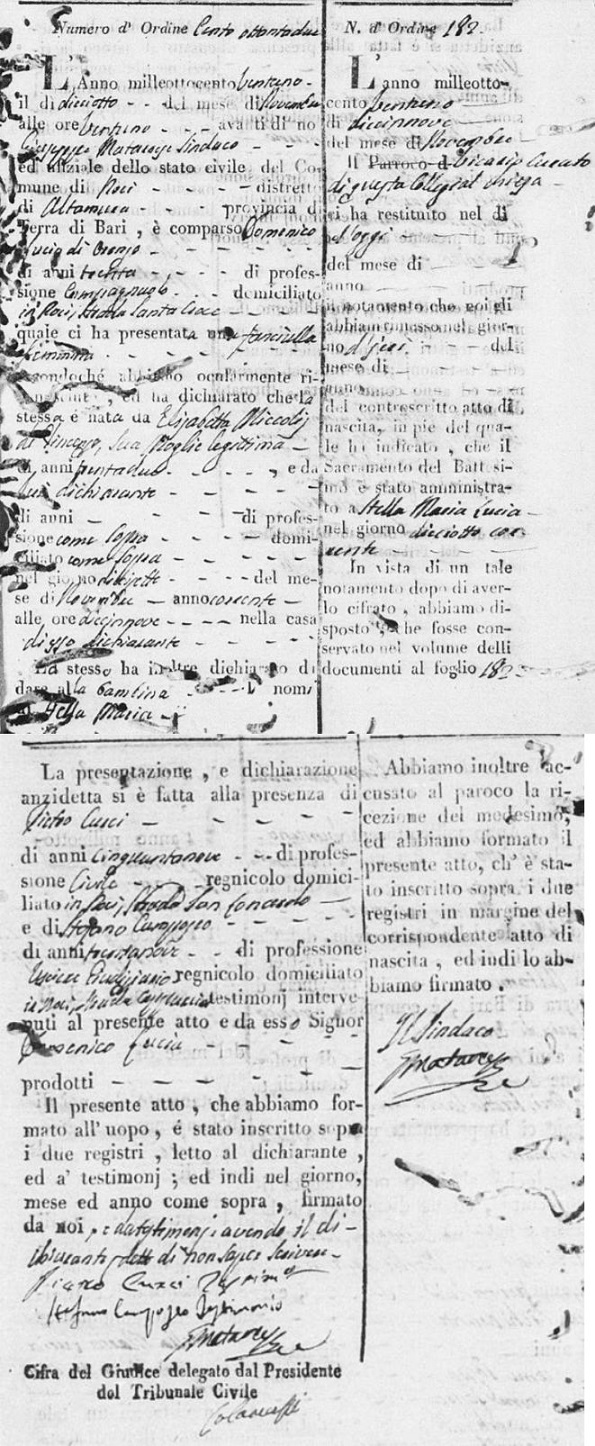 Numero d' Ordine Cento ottantadue
L'Anno milleottocento ventuno -
il di diciotto - - del mese di Novembre
alle ore ventuno - - avanti di noi
Giuseppe Matarese Sindaco
ed ufiziale dello stato civile del Co-
mune di Noci - - - distretto
di Altamura - - - provincia di
Terra di Bari , è comparso Domenico
Lucia di
di anni trenta - - - di profes-
sione - - domiciliato
in Noci, Strada Santa Croce
quale ci ha presentata una fanciulla
femmina - - -
secondochè abbiamo ocularmente ri-
, ed ha dichiarato che la
stessa è nata da Elisabetta Miccolis
di Vincenzo, sua Moglie legittima -
di anni trentadue - - - , e da
lui dichiarante - - -
di anni — di profes-
sione come sopra - - - domi-
ciliato come sopra - - -
nel giorno diciotto - - - del me-
se di Novembre - anno corrente -
alle ore diecinnove - - - nella casa
di esso dichiarante - - -
Lo stesso ha inoltre dichiarato di
dare alla bambina - - - i nomi
di Stella Maria -
N. d' Ordine 182
L'anno milleotto-
cento ventuno
di diecinnove
del mese di Novembre
Il Parroco d Vicario Curato
di questa Collegial chiesa -
ci ha restituito nel di
d'oggi
del mese di —
anno —
il notamento che noi gli
abbiamo rimesso nel gior-
no d'jeri - del
mese di —
anno —
del controscritto atto di
nascita, in piè del qua-
le ha indicato , che il
Sacramento del Battesi-
mo è stato amministra-
to a Stella Maria Lucia -
nel giorno diciotto cor-
rente -
In vista di un tale
notamento dopo di aver-
lo cifrato , abbiamo di-
sposto , che fosse con-
servato nel volume delli
documenti al foglio 182
La presentazione , e dichiarazione
anzidetta si è fatta alla presenza di
Pietro Curci -
di anni Cinquantanove - - di profes-
sione Civile - - regnicolo domici-
liato in Noci, Strada San Leonardo -
e di Stefano Campopeo
di anni trentanove - - di professione
regnicolo domiciliato
in Noci, Strada testimonj interve-
nuti al presente atto e da esso Signor
Domenico Lucia
prodotti - - - -
Il presente atto , che abbiamo for-
mato all' uopo , é stato inscritto sopra
i due registri , letto al dichiarante ,
ed a' testimonj ; ed indi nel giorno,
mese ed anno come sopra , firmato
da noi , e da testimonj avendo il di-
chiarante detto di non saper scrivere -
Pietro Curci Testimo
Stefano Campopeo Testimonio
Matarese
Cifra del Giudice delegato dal Presidente
del Tribunale Civile
Abbiamo inoltre ac-
cusato al paroco la ri-
cezione del medesimo,
ed abbiamo formato il
presente atto, ch' è sta-
to inscritto sopra i due
registri in margine del
corrispondente atto di
nascita , ed indi lo ab-
biamo firmato .
Il Sindaco
Matarese